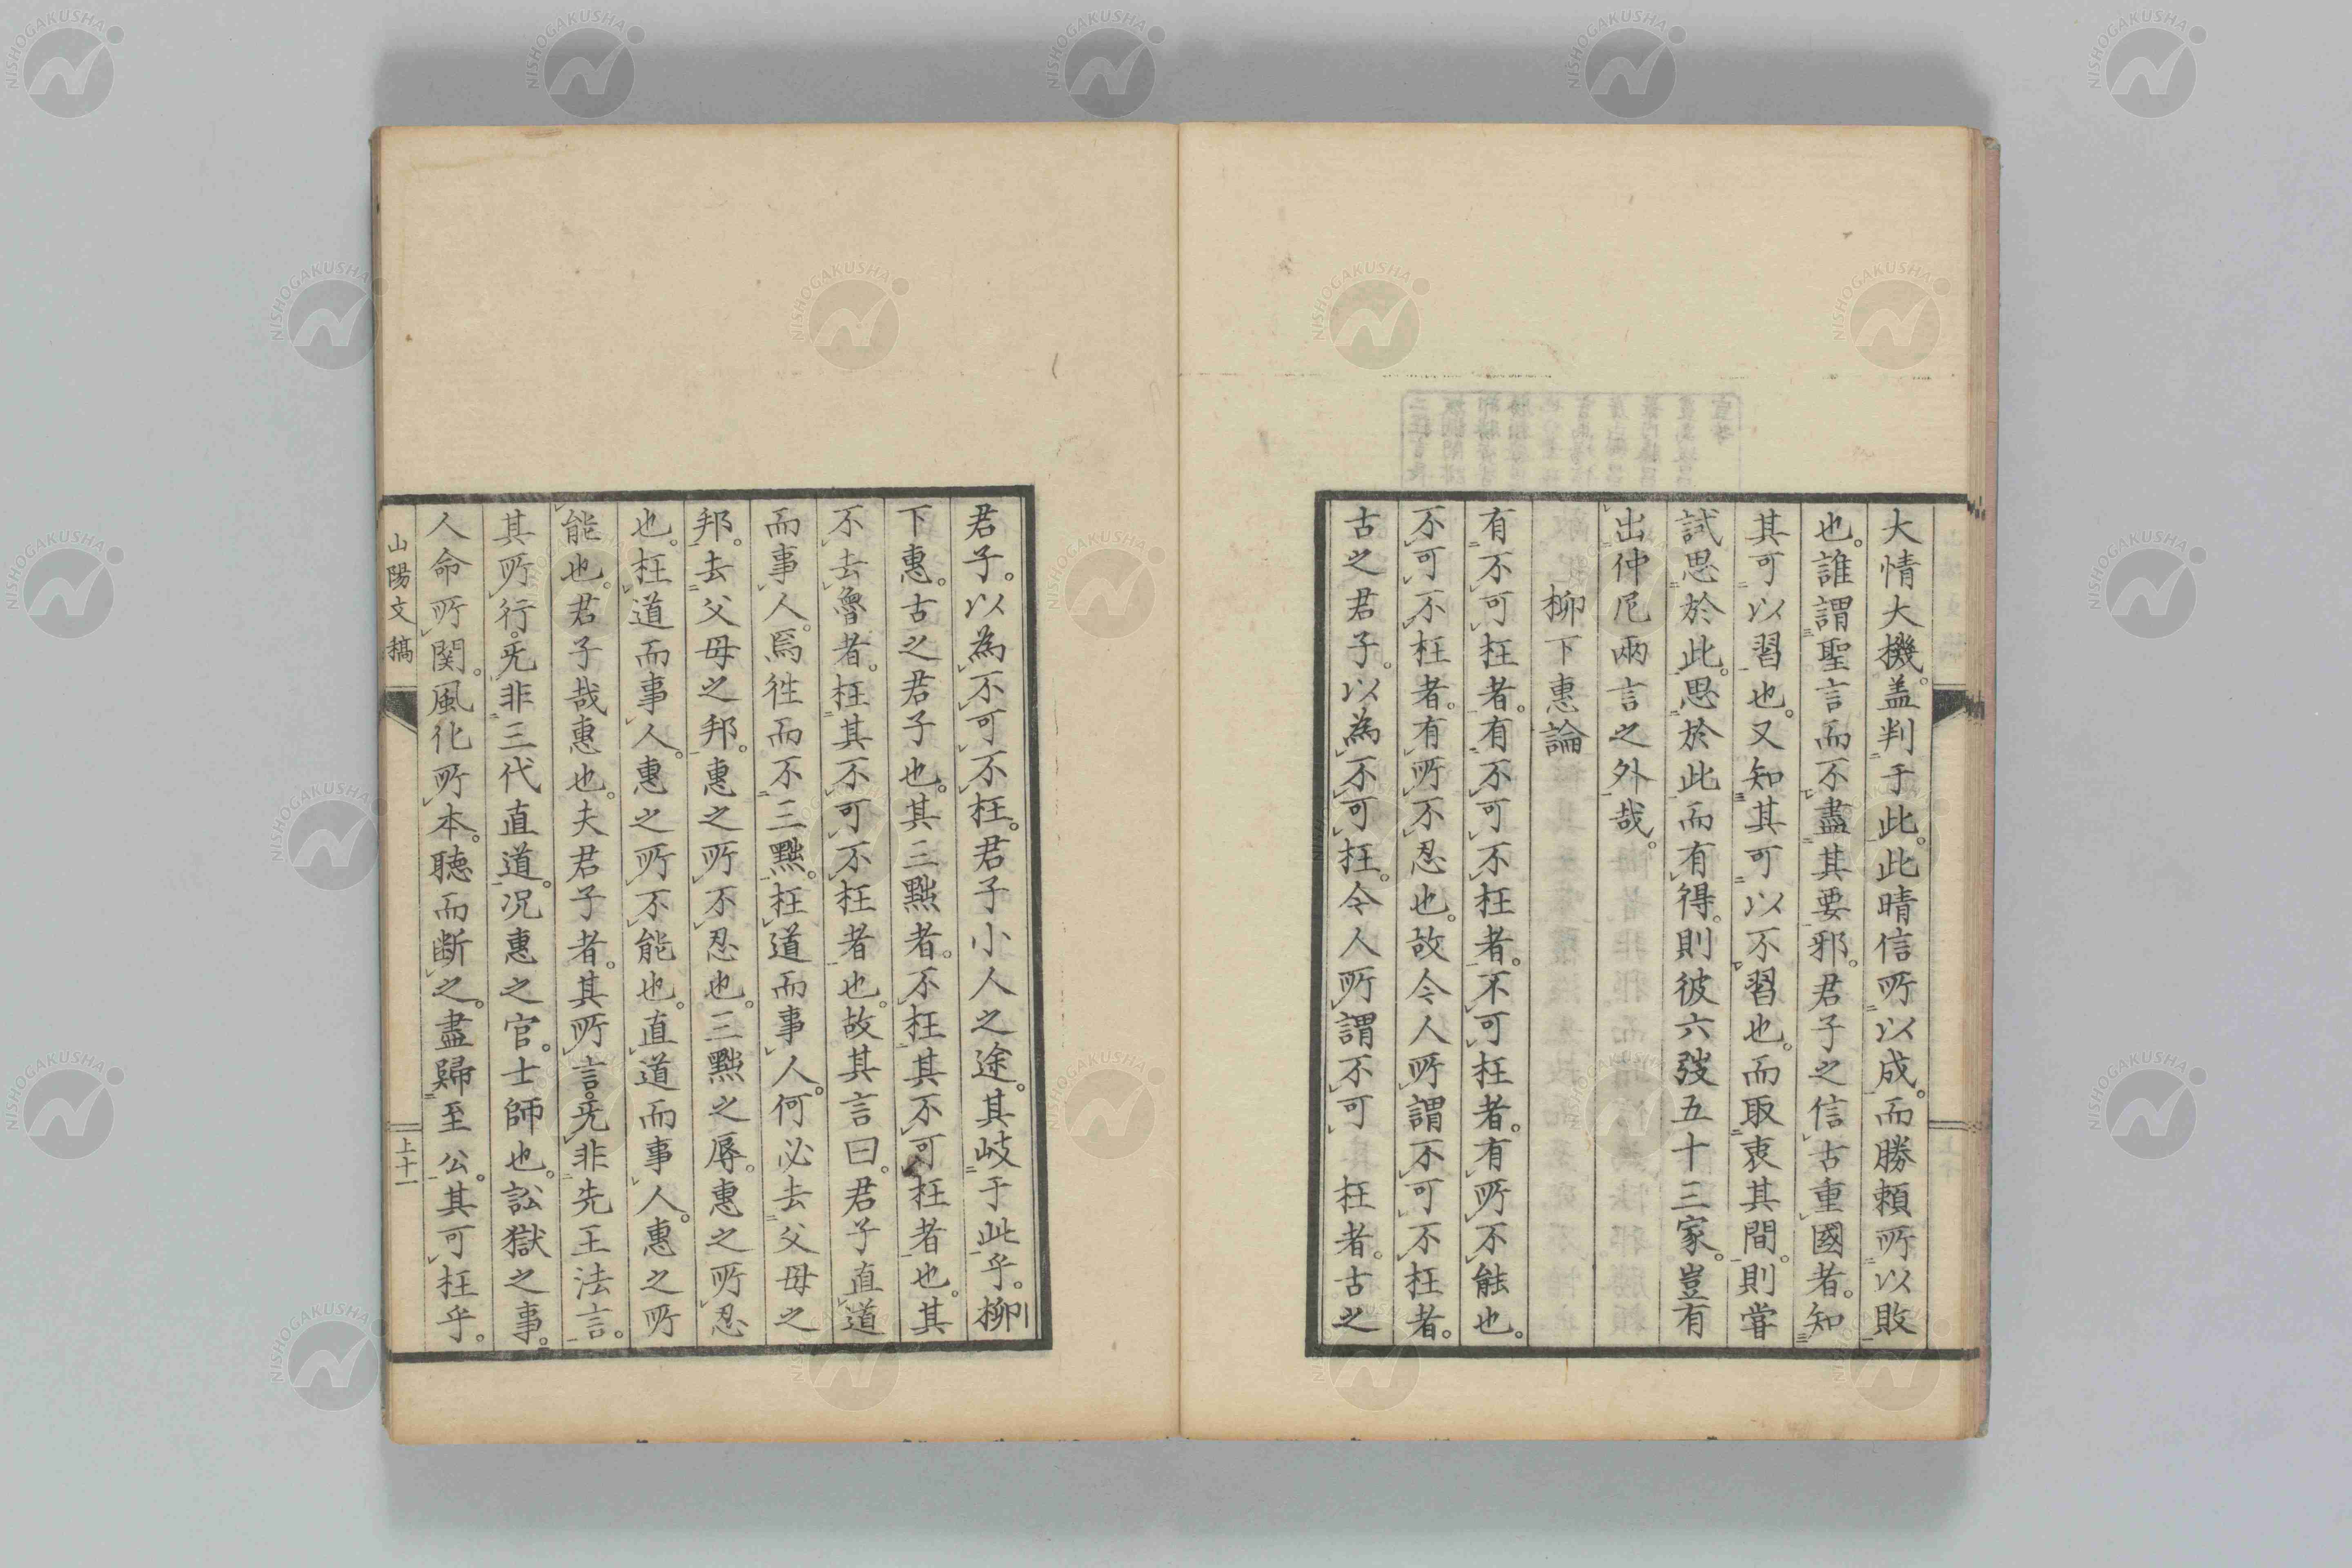 大情大機。盖判于此。此晴信所以成。而勝頼所以敗
也。誰謂聖言而不盡其要邪。君子之信古重國者。知
其可以習也。又知其可以不習也。而取衷其間。則嘗
試思於此。思於此而有得。則彼六弢五十三家。豈有
出仲尼兩言之外哉。
柳下惠論
有不可枉者。有不可不枉者。不可枉者。有所不能也。
不可不枉者。有所不忍也。故今人所謂不可不枉者。
古之君子。以為不可枉。今人所謂不可枉者。古之
君子。以為不可不枉。君子小人之途。其岐于此乎。柳
下惠。古之君子也。其三黜者。不枉其不可枉者也。其
不去魯者。枉其不可不枉者也。故其言曰。君子直道
而事人。焉往而不三黜。枉道而事人。何必去父母之
邦。去父母之邦。惠之所不忍也。三黜之辱。惠之所忍
也。枉道而事人。惠之所不能也。直道而事人。惠之所
能也。君子哉惠也。夫君子者。其所言。旡非先王法言。
其所行。旡非三代直道。况惠之官。士師也。訟獄之事。
人命所関。風化所本。聴而断之。盡歸至公。其可枉乎。
山陽文稿
上十一
NISHOGAKUSHA